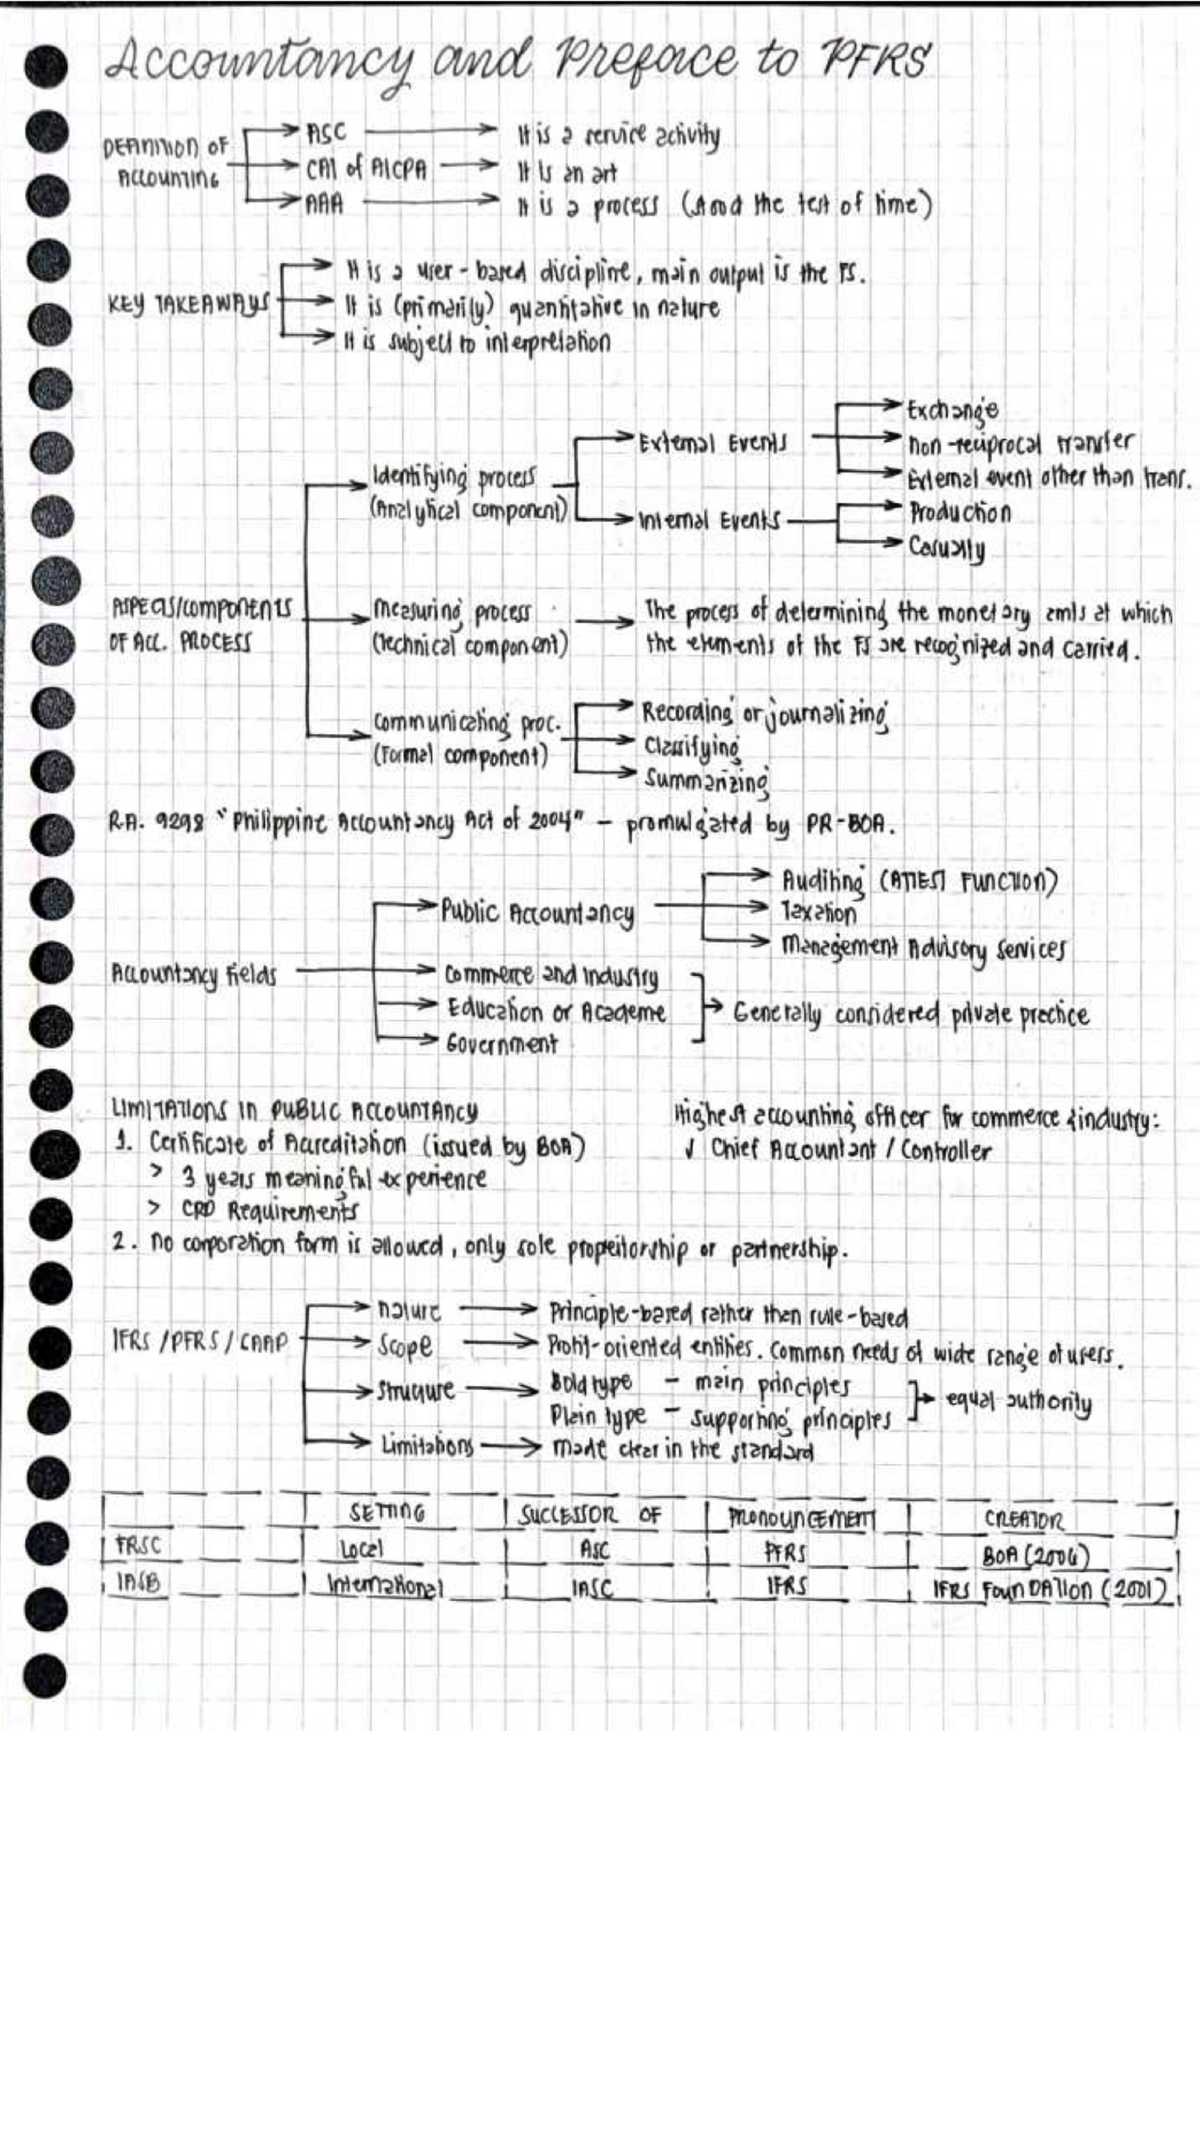 Accountancy and Preface to PFRS
DEFINITION OF ACCOUNTING
ASC
It is a service activity
CAI of AICPA
It is an art
AAA
It is a process (stood the test of time)
KEY TAKEAWAYS
It is a user-based discipline, main output is the FS.
It is (primarily) quantitative in nature
It is subject to interpretation
ASPECTS/COMPONENTS
OF ACC. PROCESS
Identifying process
(Analytical component)
External Events
Exchange
Non-reciprocal transfer
External event other than trans.
Internal Events
Production
Casualty
Measuring process
(Technical component)
The process of determining the monetary amts at which
the elements of the FS are recognized and carried.
Communicating proc.
(Formal component)
Recording or journalizing
Classifying
Summarizing
R.A. 9298 "Philippine Accountancy Act of 2004" - promulgated by PR-BOA.
Accountancy Fields
Public Accountancy
Auditing (ATTEST FUNCTION)
Taxation
Management Advisory Services
Commerce and Industry
Education or Academe
Government
Generally considered private practice
LIMITATIONS IN PUBLIC ACCOUNTANCY
1. Certificate of Accreditation (issued by BOA)
> 3 years meaningful experience
> CPD Requirements
2. No corporation form is allowed, only sole propeitorship or partnership.
Highest accounting officer for commerce & industry:
✓ Chief Accountant / Controller
IFRS/PFRS/GAAP
Nature
Principle-based rather than rule-based
Scope
Profit-oriented entities. Common needs of wide range of users.
Structure
Bold type - main principles
Plain type - supporting principles
equal authority
Limitations
made clear in the standard
SETTING SUCCESSOR OF PRONOUNCEMENT CREATOR
FRSC Local ASC PFRS BOA (2006)
IASB International IASC IFRS IFRS FOUNDATION (2001)